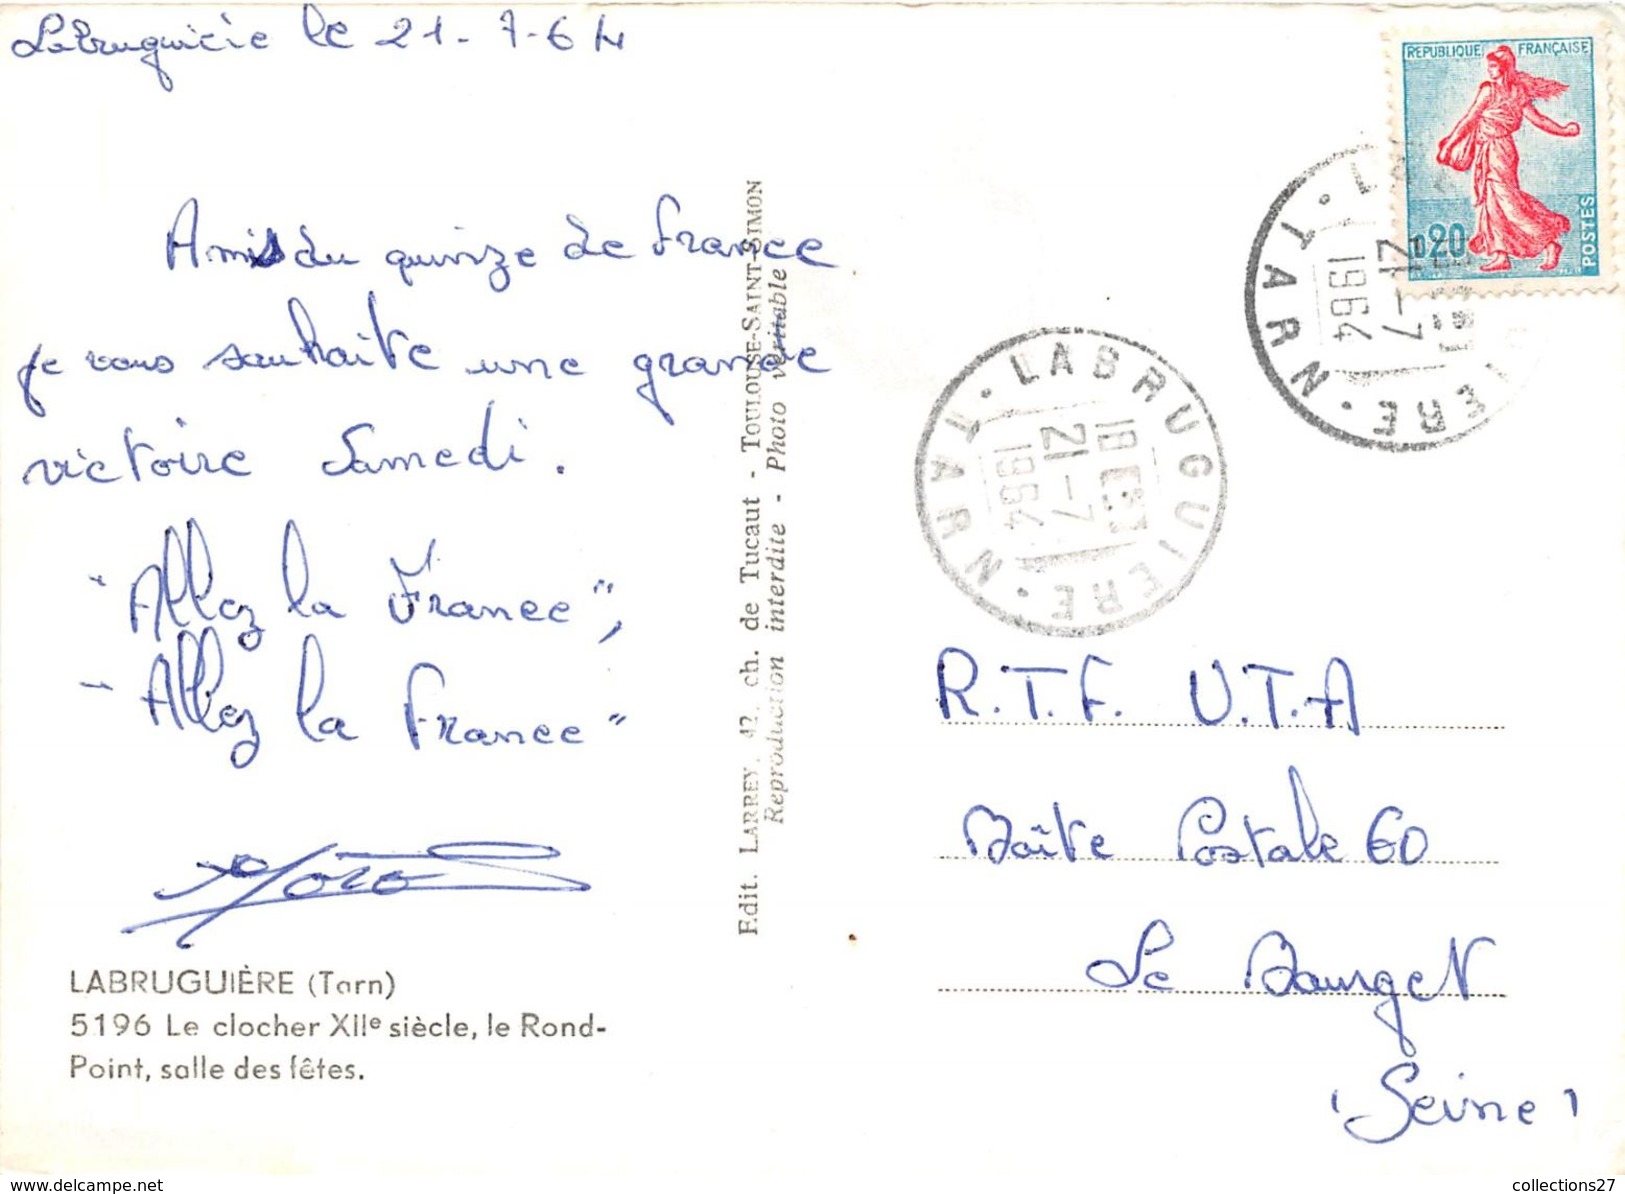 Labruguière le 21-7-64
Amis du quinze de France
je vous souhaite une grande
victoire Samedi.
"Allez la France",
"Allez la France"
LABRUGUIÈRE (Tarn)
5196 Le clocher XIIe siècle, le Rond-
Point, salle des fêtes.
Edit. LARREY, 42, ch. de Tucaut - TOULOUSE-SAINT-SIMON
Reproduction interdite - Photo véritable
REPUBLIQUE FRANÇAISE
0,20
POSTES
LABRUGUIERE
TARN
18H
21-7
1964
IERE
TARN
21-7
1964
R.T.F. U.T.A
Boîte Postale 60
Le Bourget
(Seine)
www.delcampe.net
collections27